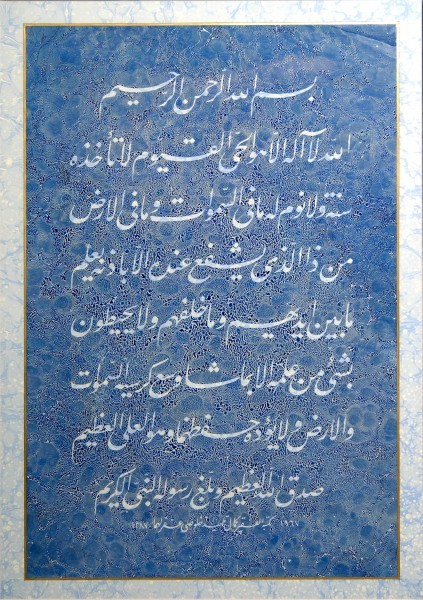 بسم الله الرحمن الرحيم
الله لا آله الا هو الحى القيوم لا تأخذه
سنة ولا نوم له ما فى السموات وما فى الارض
من ذا الذى يشفع عنده الا باذنه يعلم
ما بين ايديهم وما خلفهم ولا يحيطون
بشئ من علمه الا بما شاء وسع كرسيه السموت
والارض ولا يؤده حفظهما وهو العلى العظيم
صدق الله العظيم وبلغ رسوله النبى الكريم
١٩٦٧ ١٣٨٧